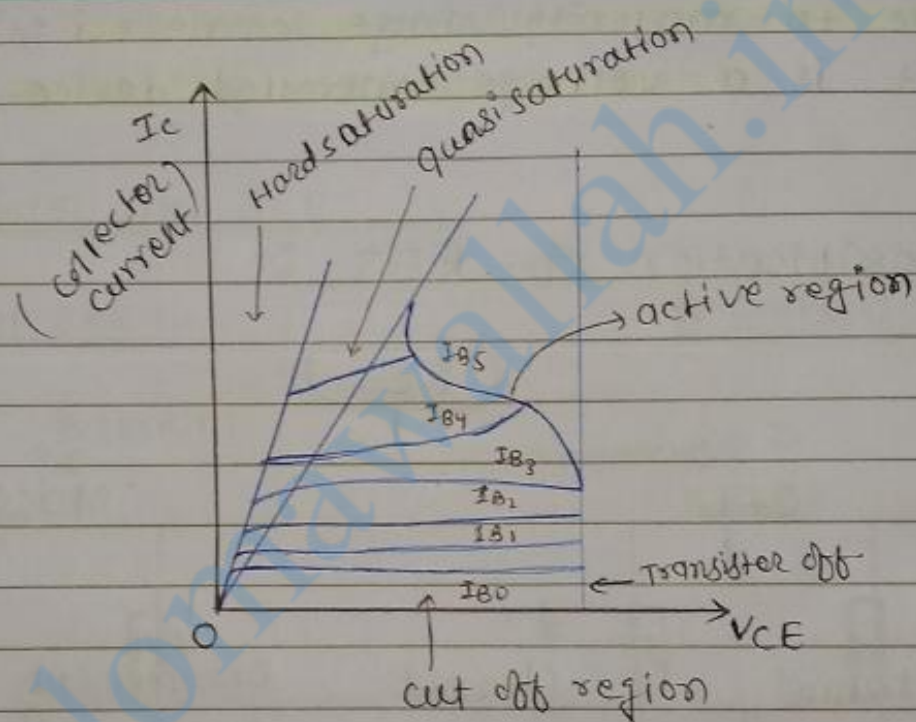 Ic
(collector)
current
Hardsaturation
quasi saturation
active region
IB5
IB4
IB3
IB2
IB1
IB0
Transister off
O
VCE
cut off region